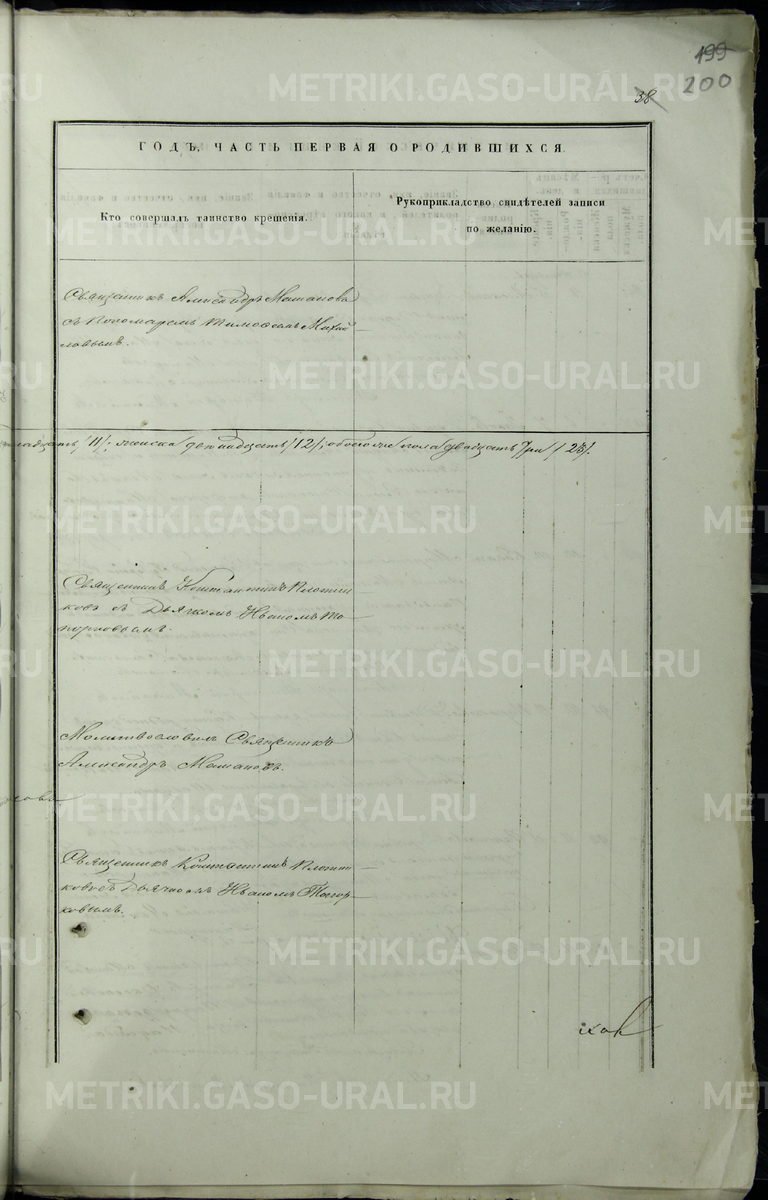 199
200
38
ГОДЪ, ЧАСТЬ ПЕРВАЯ О РОДИВШИХСЯ.
Кто совершалъ таинство крещенія.
Рукоприкладство свидѣтелей записи
по желанію.
Священникъ Александръ
съ Пономаремъ Тимофеемъ Михай
ловымъ.
/11/; женска двенадцать /12/; обоего же пола двадцать три /23/.
Священникъ Константинъ Плотни
ковъ съ Дьячкомъ Иваномъ То
порковымъ.
Молитвословилъ Священникъ
Александръ
Священникъ Константинъ Плотни
ковъ съ Дьячкомъ Иваномъ Топор
ковымъ.
METRIKI.GASO-URAL.RU